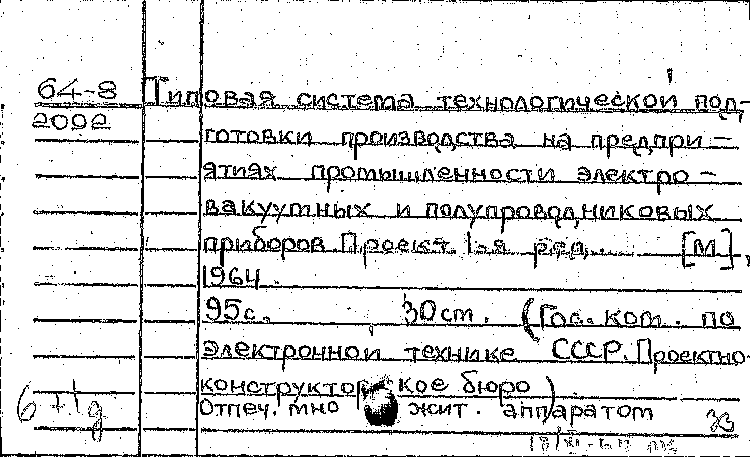 64-8 Типовая система технологической под-
2092 готовки производства на предпри-
ятиях промышленности электро-
вакуумных и полупроводниковых
приборов Проект. 1-я ред. [М],
1964.
95с. 30см. (Гос. ком. по
электронной технике СССР. Проектно-
конструкторское бюро)
Отпеч. множит. аппаратом